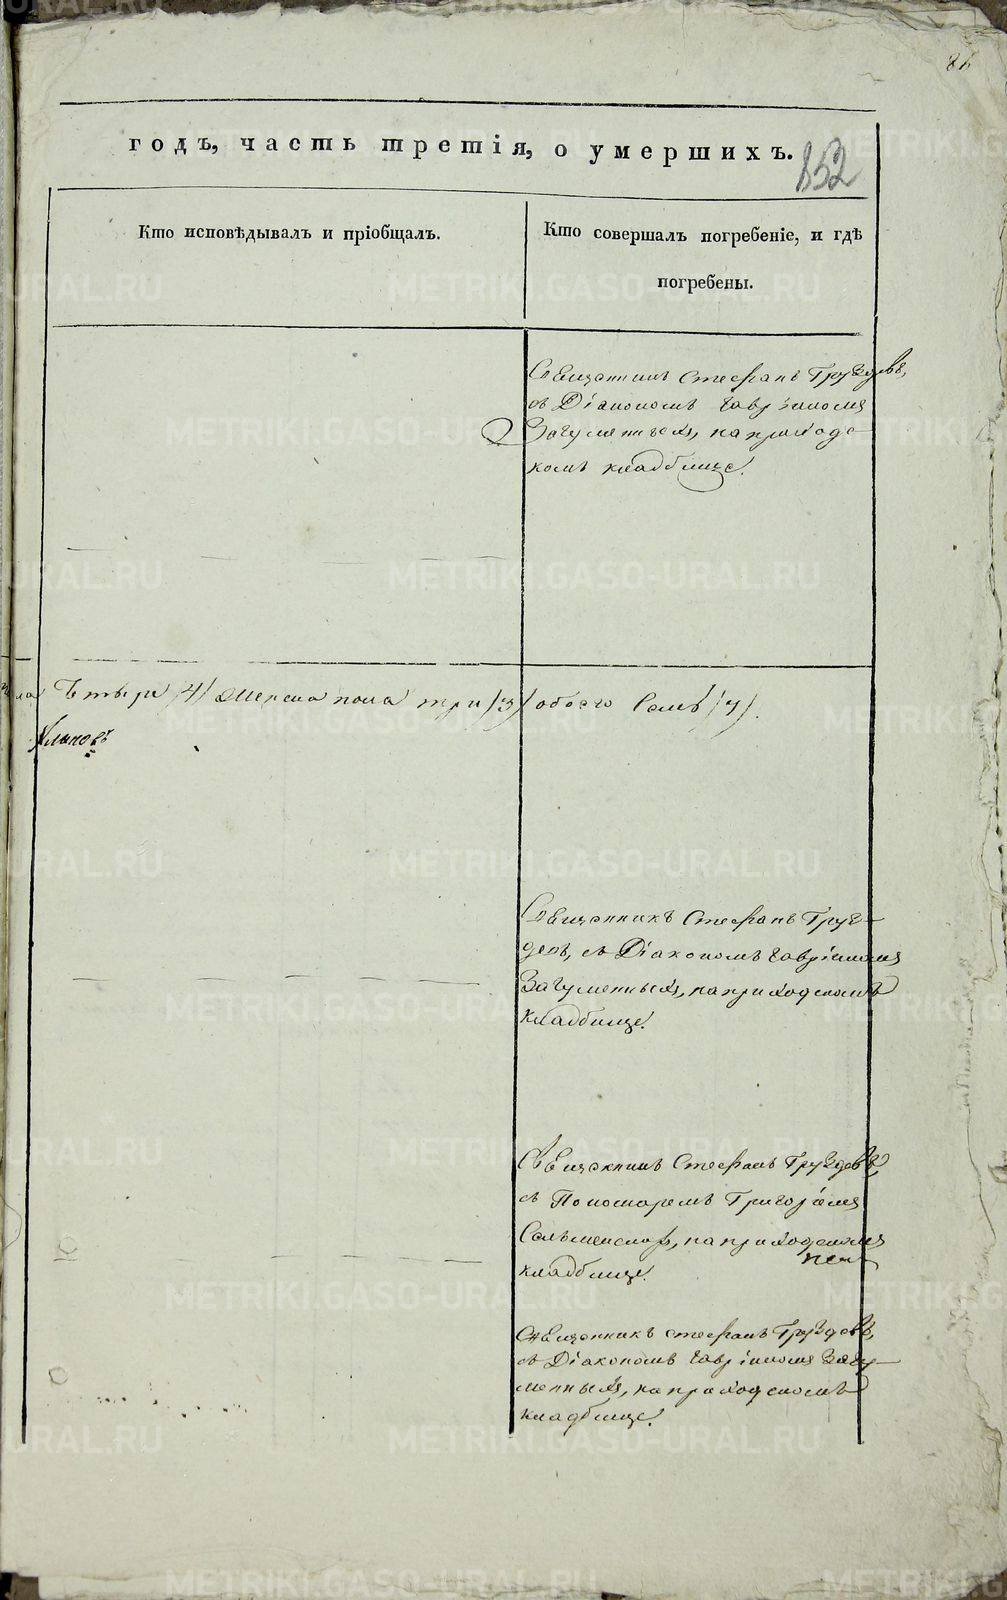 годъ, часть третія, о умершихъ.
852
Кто исповѣдывалъ и пріобщалъ.
Кто совершалъ погребеніе, и гдѣ
погребены.
Священникъ Стефанъ Груздевъ,
съ Діакономъ Гавріиломъ
Загуменныхъ, на приходс-
комъ кладбище.
четыре /4/ женска пола три /3/ обоего семь /7/.
Священникъ Стефанъ Груз-
девъ, съ Діакономъ Гавріиломъ
Загуменныхъ, на приходскомъ
кладбище.
Священникъ Стефанъ Груздевъ,
съ Пономаремъ Григоріемъ
на приходскомъ
кладбище.
Священникъ Стефанъ Груздевъ,
съ Діакономъ Гавріиломъ Загу-
менныхъ, на приходскомъ
кладбище.
METRIKI.GASO-URAL.RU